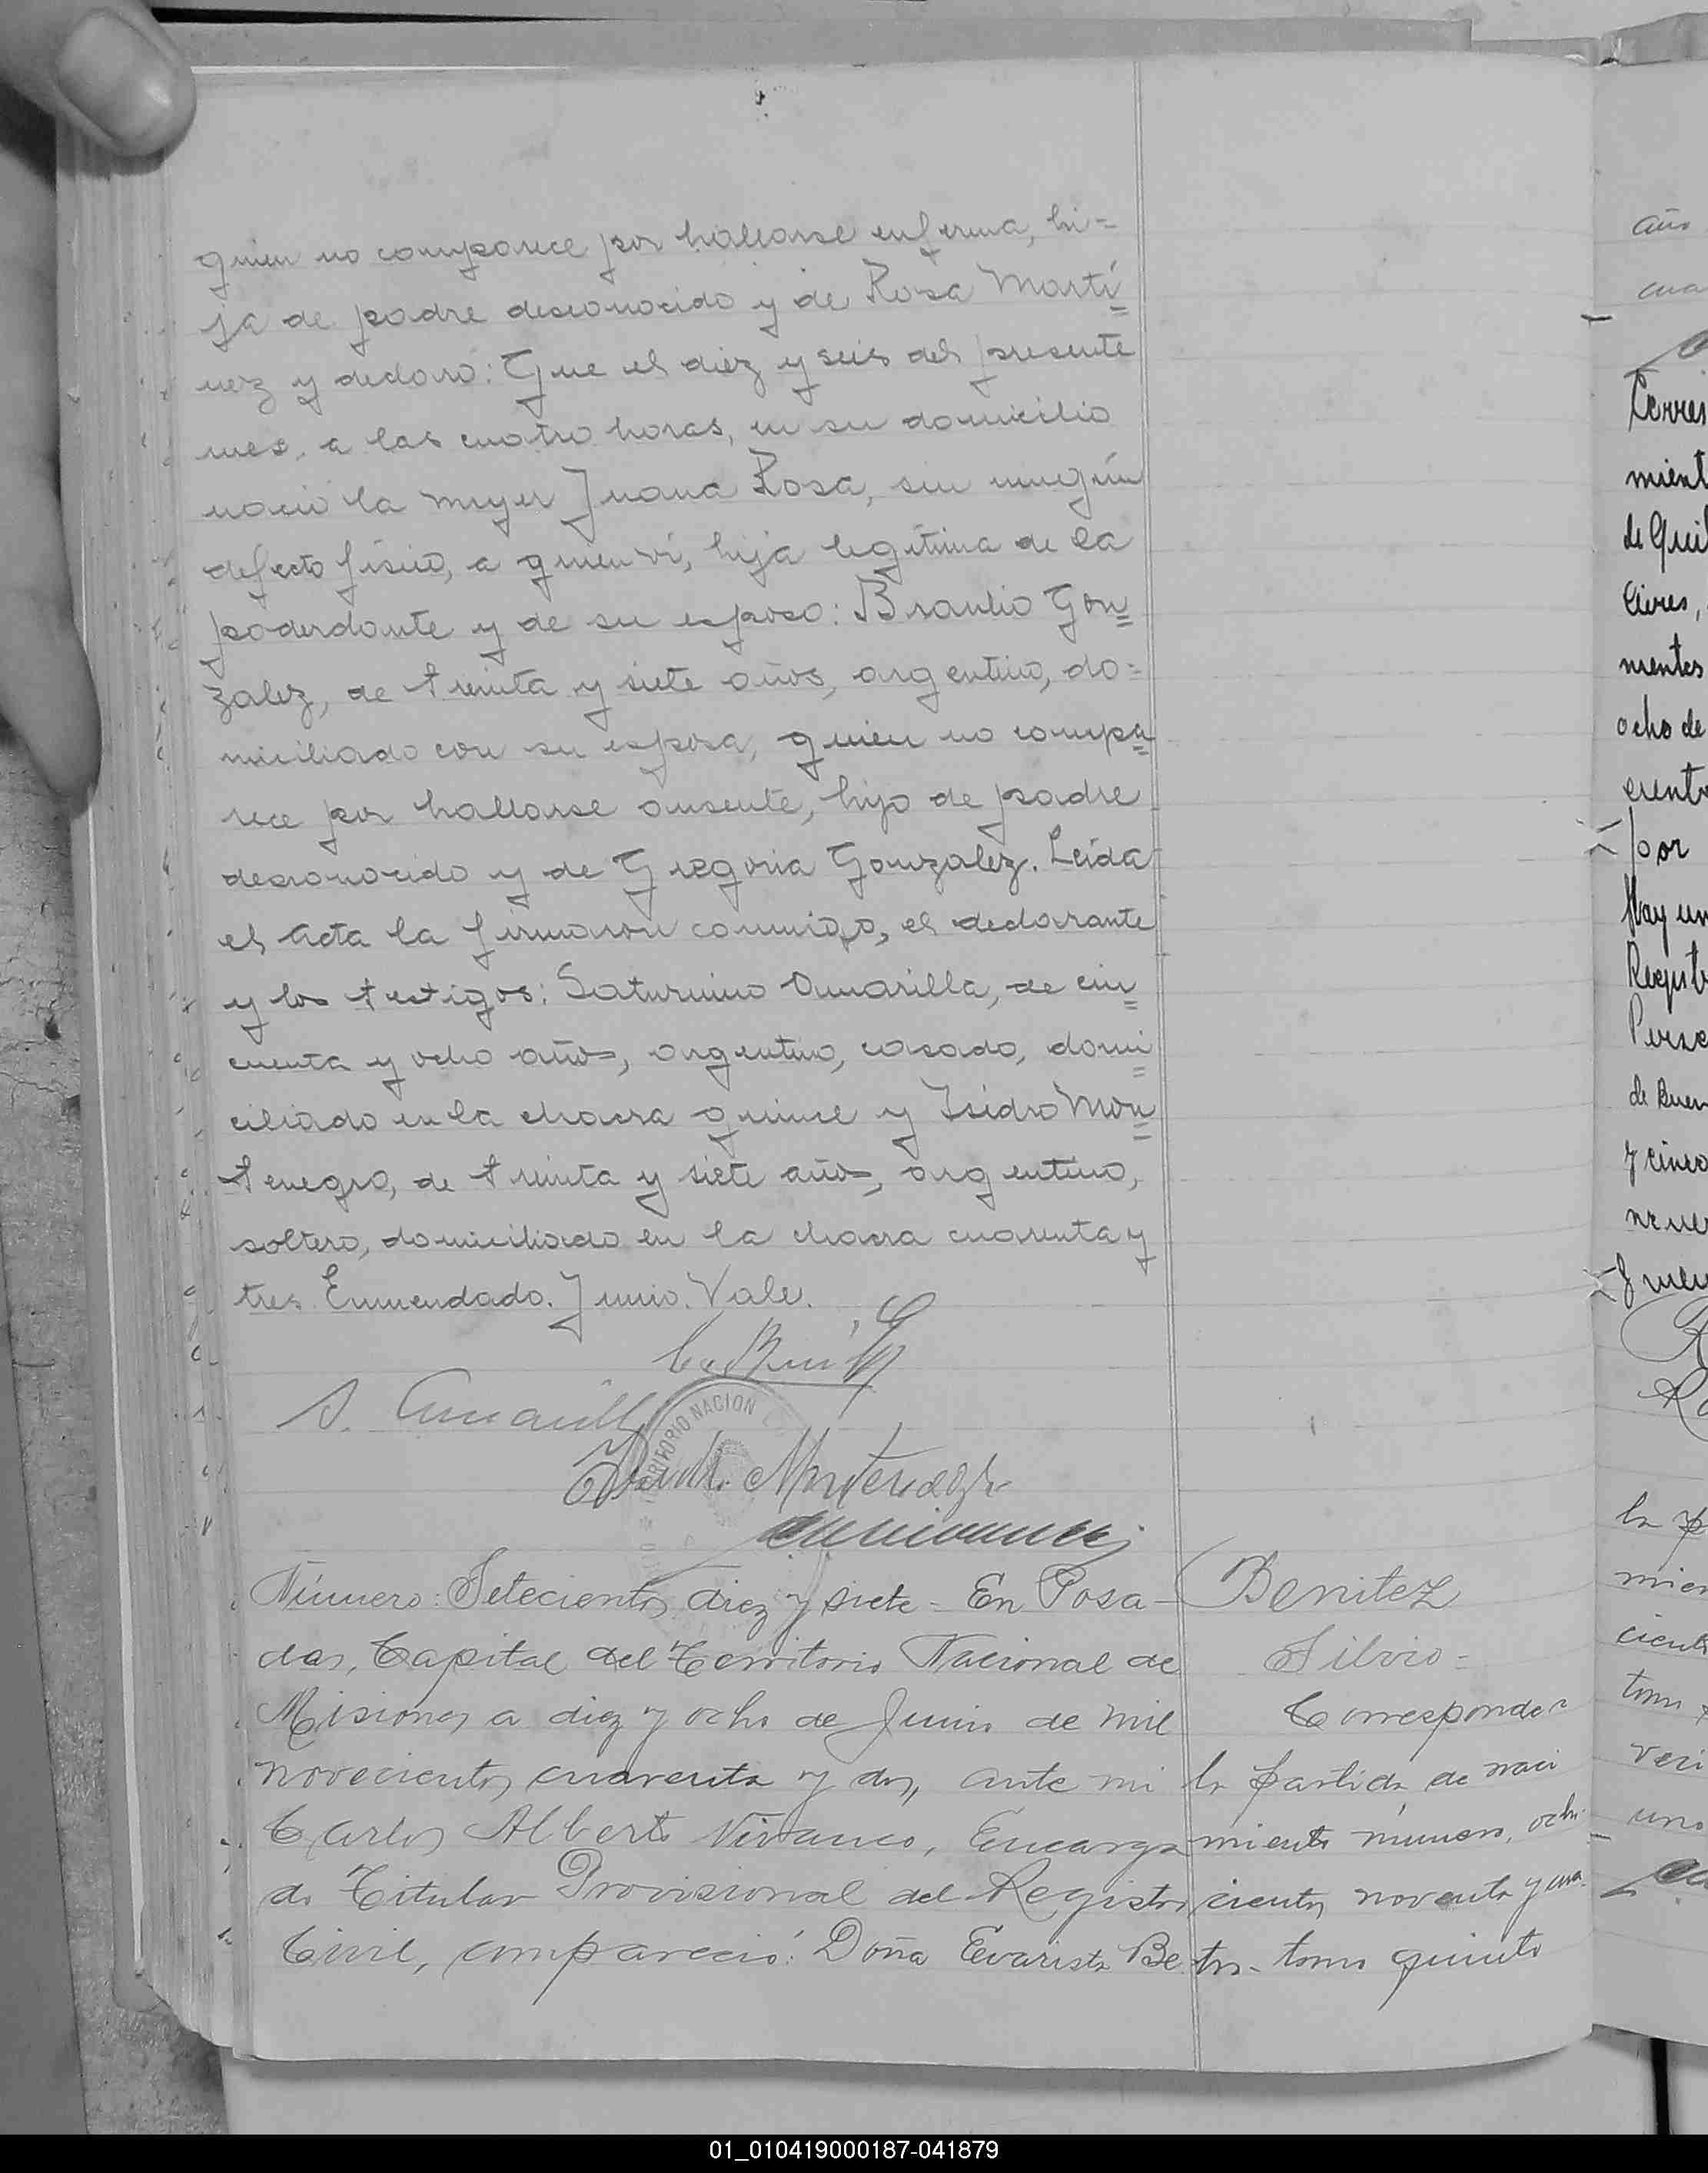 quien no comparece por hallarse enferma, hi=
ja de padre desconocido y de Rosa Martí=
nez y declaró: Que el diez y seis del presente
mes, a las cuatro horas, en su domicilio
nació la mujer Juana Rosa, sin ningún
defecto físico, a quien ví, hija legítima de la
poderdante y de su esposo: Braulio Gon=
zalez, de treinta y siete años, argentino, do=
miciliado con su esposa, quien no compa=
rece por hallarse ausente, hijo de padre
desconocido y de Gregoria Gonzalez. Leída
el acta la firmaron conmigo, el declarante
y los testigos: Saturnino Amarilla, de cin=
cuenta y ocho años, argentino, casado, domi=
ciliado en la chacra quince y Isidro Mon=
tenegro, de treinta y siete años, argentino,
soltero, domiciliado en la chacra cuarenta y
tres. Enmendado. Junio. Vale.
S. Amarilla
TERRITORIO NACIONAL
Montenegro
Número: Setecientos diez y siete - En Posa-
das, Capital del Territorio Nacional de
Misiones a diez y ocho de Junio de mil
novecientos cuarenta y dos, ante mi
Carlos Alberto Vivanco, Encarga
do Titular Provisional del Registro
Civil, compareció: Doña Evarista Be
Benitez
Silvio -
Corresponde a
la partida de naci
miento número, ocho
cientos noventa y cua
tro - tomo quinto
año
cua
Corres
mient
de Quil
Aires,
mentos
ocho de
cient
por
Hay un
Regist
Perso
de Buen
y cinco
la p
mien
cient
tomo
veri
uno
01_010419000187-041879